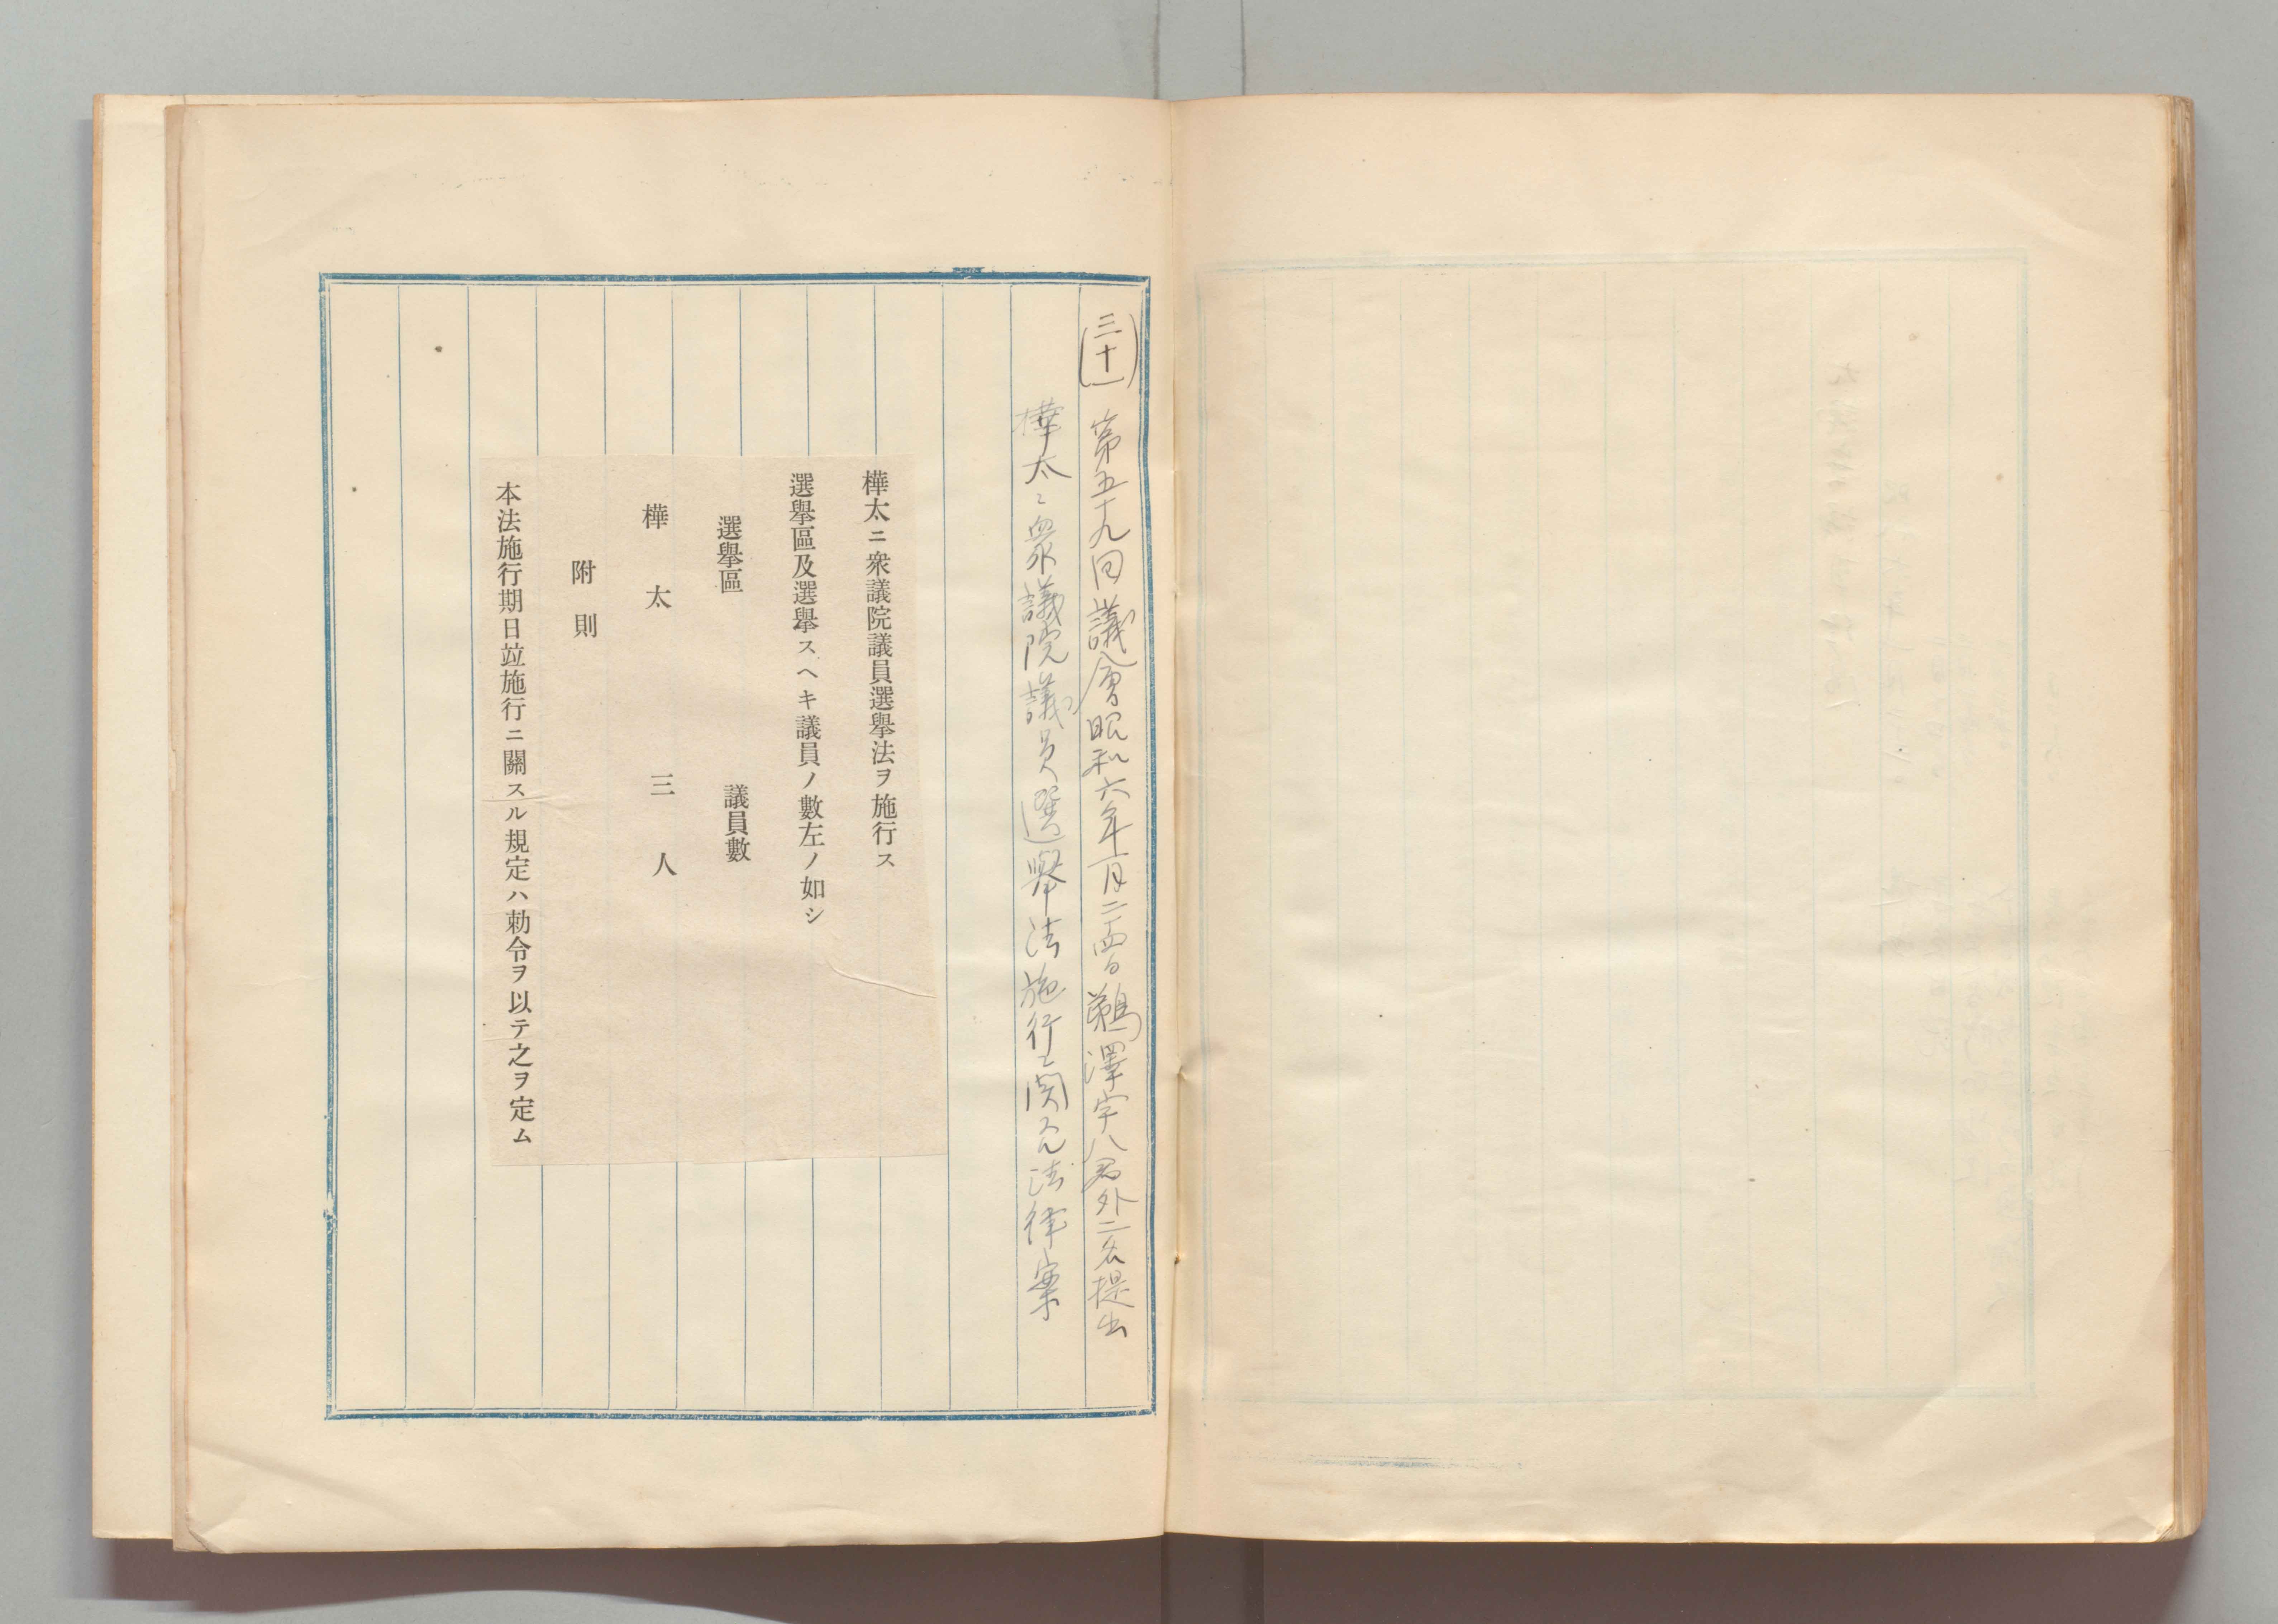 (三十一) 第五十九回議會昭和六年二月二十四日鵜澤宇八君外二名提出
樺太ニ衆議院議員選擧法施行ニ関スル法律案
樺太ニ衆議院議員選擧法ヲ施行ス
選擧區及選擧スヘキ議員ノ數左ノ如シ
選擧區 議員數
樺太 三人
附則
本法施行期日竝施行ニ關スル規定ハ勅令ヲ以テ之ヲ定ム